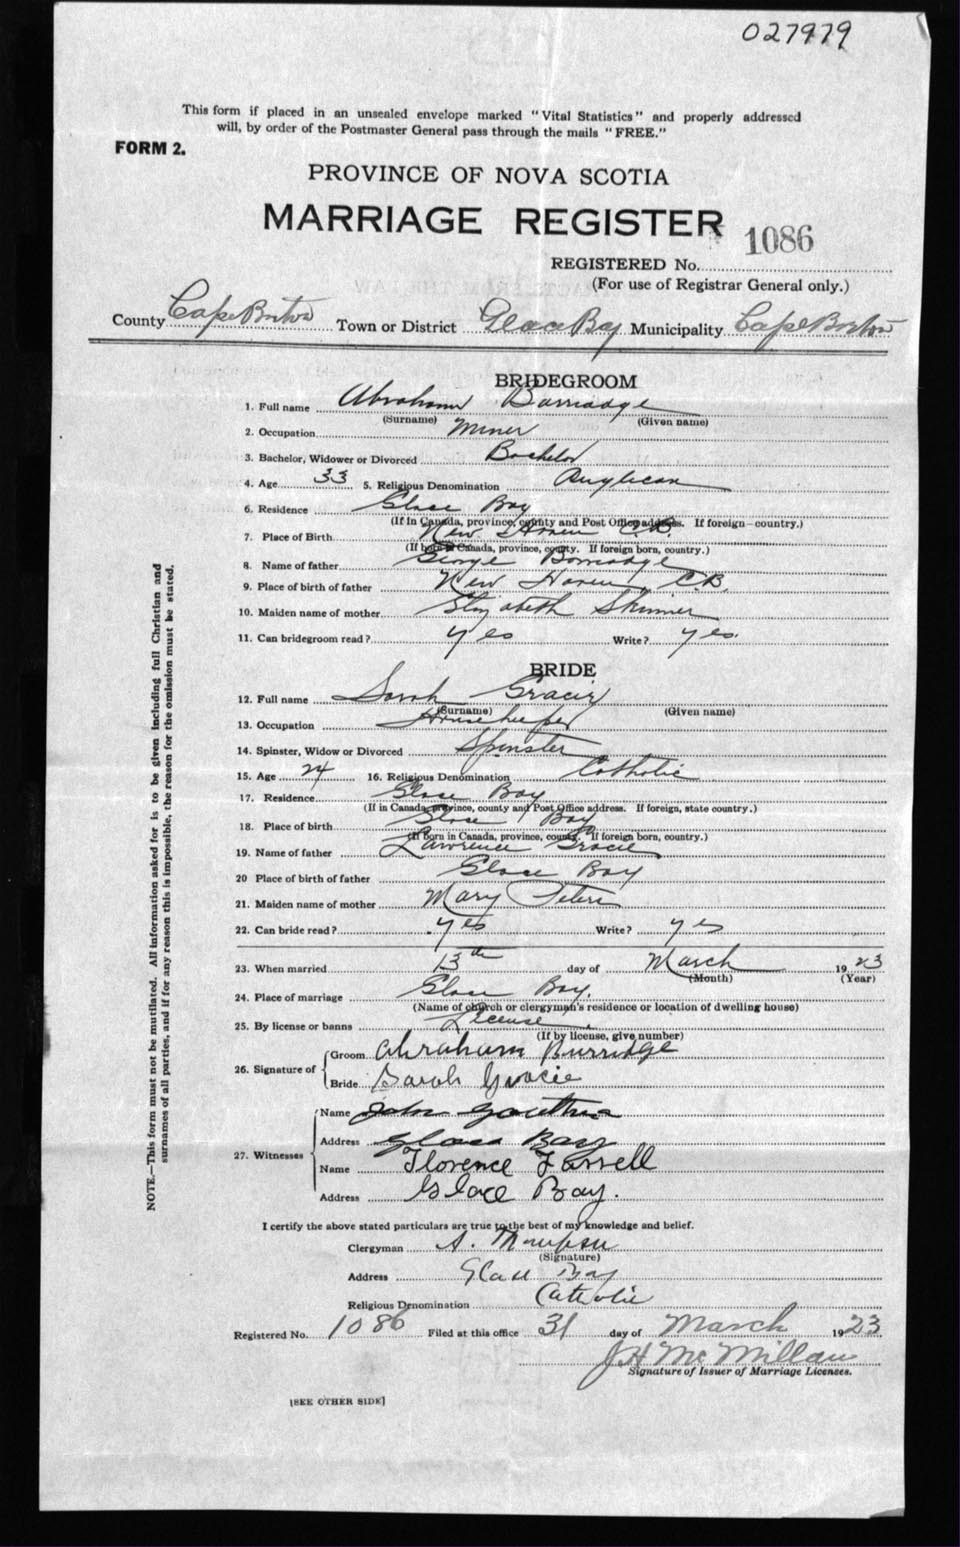 027979
This form if placed in an unsealed envelope marked "Vital Statistics" and properly addressed
will, by order of the Postmaster General pass through the mails "FREE."
FORM 2.
PROVINCE OF NOVA SCOTIA
MARRIAGE REGISTER
1086
REGISTERED No.
(For use of Registrar General only.)
County Cape Breton Town or District Glace Bay Municipality Cape Breton
BRIDEGROOM
1. Full name Abraham Burridge
(Surname) (Given name)
2. Occupation Miner
3. Bachelor, Widower or Divorced Bachelor
4. Age 33 5. Religious Denomination Anglican
6. Residence Glace Bay
(If in Canada, province, county and Post Office address. If foreign—country.)
7. Place of Birth New Haven C.B.
(If born in Canada, province, county. If foreign born, country.)
8. Name of father George Burridge
9. Place of birth of father New Haven, C.B.
10. Maiden name of mother Elizabeth Skinner
11. Can bridegroom read? yes Write? yes.
BRIDE
12. Full name Sarah Gracie
(Surname) (Given name)
13. Occupation Housekeeper
14. Spinster, Widow or Divorced Spinster
15. Age 24 16. Religious Denomination Catholic
17. Residence Glace Bay
(If in Canada, province, county and Post Office address. If foreign, state country.)
18. Place of birth Glace Bay
(If born in Canada, province, county. If foreign born, country.)
19. Name of father Lawrence Gracie
20 Place of birth of father Glace Bay
21. Maiden name of mother Mary Peters
22. Can bride read? yes Write? yes
23. When married 13th day of March 1923
(Month) (Year)
24. Place of marriage Glace Bay.
(Name of church or clergyman's residence or location of dwelling house)
25. By license or banns License
(If by license, give number)
26. Signature of Groom Abraham Burridge
Bride Sarah Gracie
27. Witnesses Name John
Address Glace Bay
Name Florence Farrell
Address Glace Bay.
I certify the above stated particulars are true to the best of my knowledge and belief.
Clergyman A. Thompson
(Signature)
Address Glace Bay
Religious Denomination Catholic
Registered No. 1086 Filed at this office 31 day of March 1923
J H McMillan
Signature of Issuer of Marriage Licenses.
[SEE OTHER SIDE]
NOTE.—This form must not be mutilated. All information asked for is to be given including full Christian and
surnames of all parties, and if for any reason this is impossible, the reason for the omission must be stated.